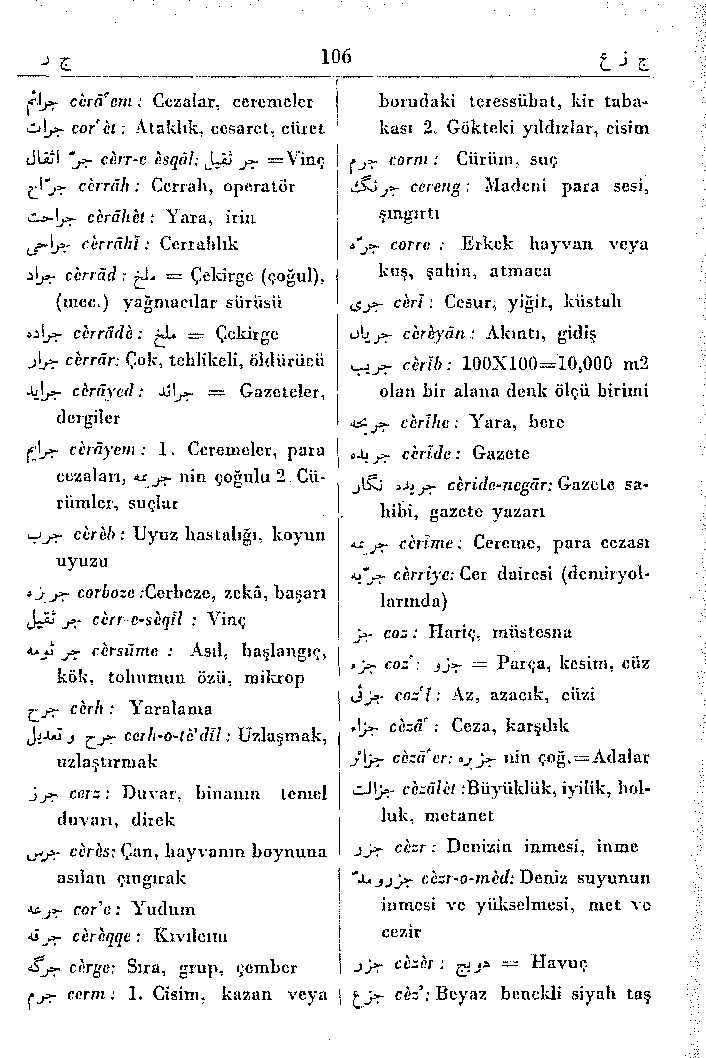 ج ر
106
ج ز ع
جرائم cèrâ'em : Cezalar, ceremeler
جرات cor'èt : Ataklık, cesaret, cüret
جرّ اثقال cèrr-e èsqâl: جر ثقیل =Vinç
جرّاح cèrrâh : Cerrah, operatör
جراحت cèrâhèt : Yara, irin
جراحی cèrrâhî : Cerrahlık
جراد cèrrâd : ملخ = Çekirge (çoğul),
(mec.) yağmacılar sürüsü
جراده cèrrâdè : ملخ = Çekirge
جرار cèrrâr: Çok, tehlikeli, öldürücü
جراید cèrâyed : جرائد = Gazeteler,
dergiler
جرایم cèrâyem : 1. Ceremeler, para
cezaları, جریمه nin çoğulu 2. Cü-
rümler, suçlar
جرب cèrèb : Uyuz hastalığı, koyun
uyuzu
جربزه corboze :Cerbeze, zekâ, başarı
جر ثقیل cèrr-e-sèqîl : Vinç
جرثومه cèrsûme : Asıl, başlangıç,
kök, tohumun özü, mikrop
جرح cèrh : Yaralama
جرح و تعدیل cerh-o-tè'dîl : Uzlaşmak,
uzlaştırmak
جرز cerz : Duvar, binanın temel
duvarı, direk
جرس cèrès: Çan, hayvanın boynuna
asılan çıngırak
جرعه cor'e : Yudum
جرقه cèrèqqe : Kıvılcım
جرگه cèrge: Sıra, grup, çember
جرم cerm : 1. Cisim, kazan veya
borudaki teressübat, kir taba-
kası 2. Gökteki yıldızlar, cisim
جرم corm : Cürüm, suç
جرنگ cereng : Madeni para sesi,
şıngırtı
جرّه corre : Erkek hayvan veya
kuş, şahin, atmaca
جری cèrî : Cesur, yiğit, küstah
جریان cèrèyân : Akıntı, gidiş
جریب cèrîb : 100X100=10,000 m2
olan bir alana denk ölçü birimi
جریحه cèrîhe : Yara, bere
جریده cèrîde : Gazete
جریده نگار cèride-negâr: Gazete sa-
hibi, gazete yazarı
جریمه cèrîme : Cereme, para cezası
جرّیه cèrriye: Cer dairesi (demiryol-
larında)
جز coz : Hariç, müstesna
جزء coz' : جزو = Parça, kesim, cüz
جزئی coz'î : Az, azacık, cüzi
جزاء cèzâ' : Ceza, karşılık
جزائر cèzâ'er: جزیره nin çoğ.=Adalar
جزالت cèzâlèt :Büyüklük, iyilik, bol-
luk, metanet
جزر cèzr : Denizin inmesi, inme
جزرومدّ cèzr-o-mèd: Deniz suyunun
inmesi ve yükselmesi, met ve
cezir
جزر cèzèr : هویج = Havuç
جزع cèz': Beyaz benekli siyah taş